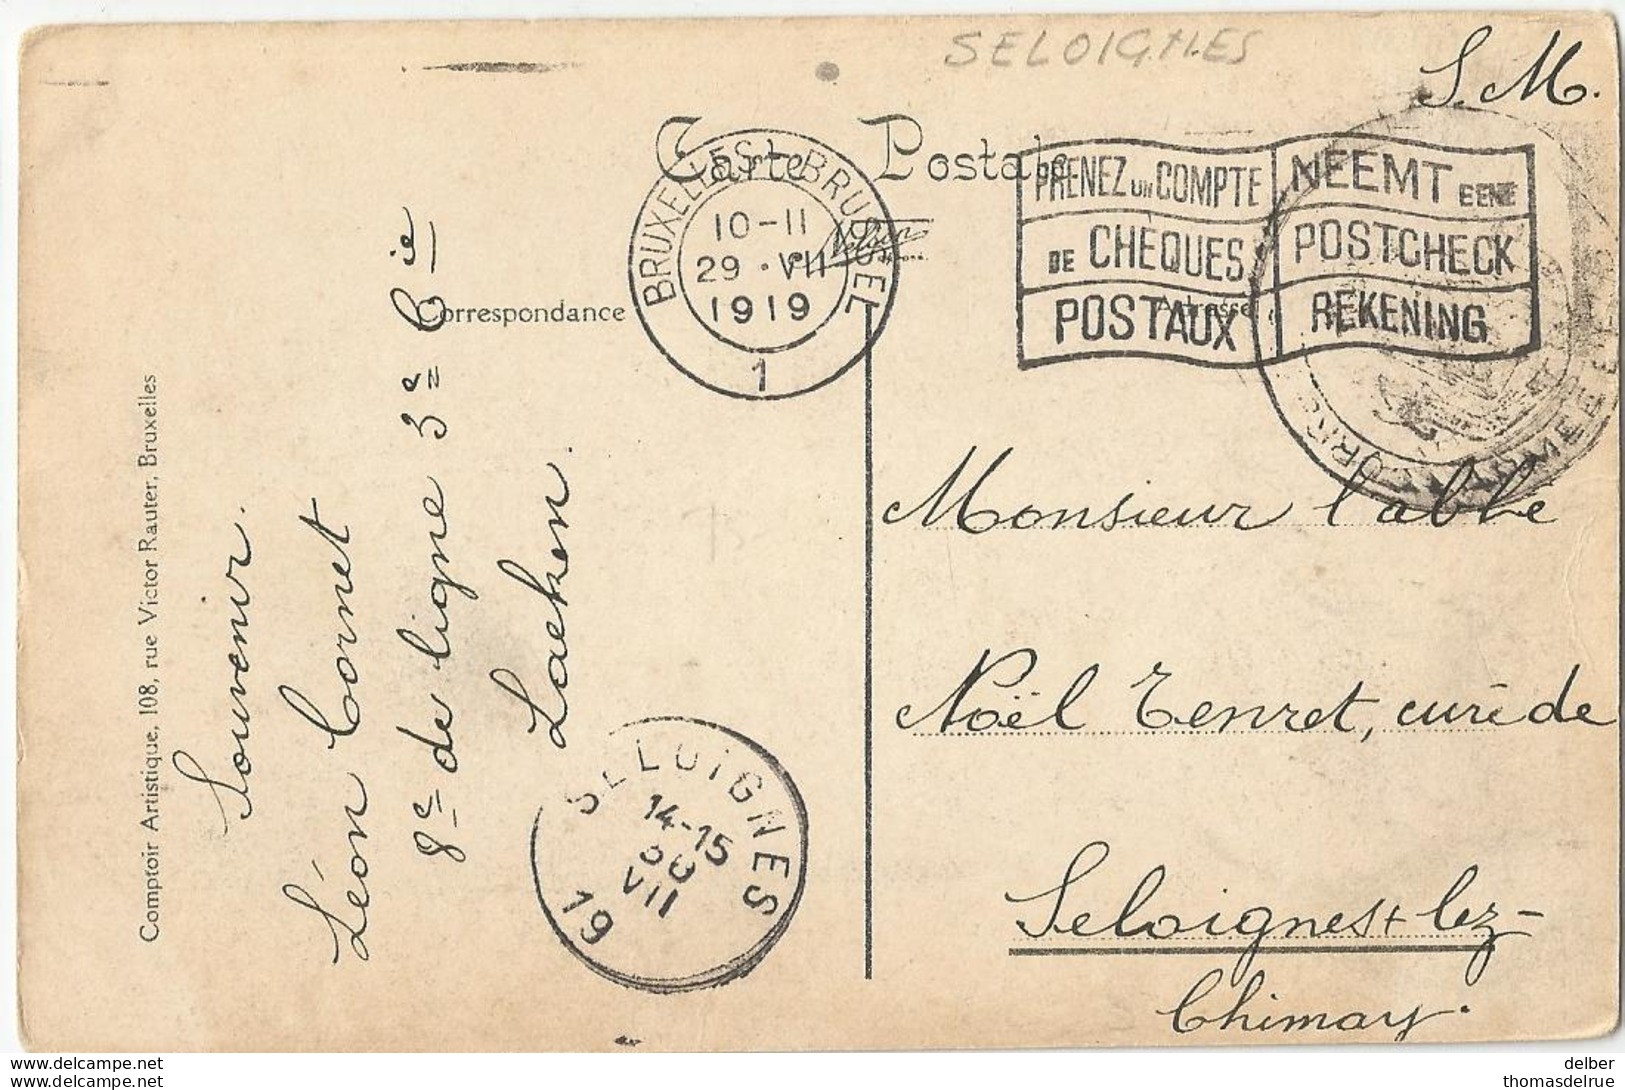 SELOIGNES
S. M.
Carte Postale
BRUXELLES 1 BRUSSEL
10-11
29 · VII
1919
1
PRENEZ UN COMPTE
DE CHÈQUES
POSTAUX
NEEMT EENE
POSTCHECK
REKENING
Nelson
Correspondance
Adresse
ARMEE
Comptoir Artistique, 108, rue Victor Rauter, Bruxelles
Souvenir.
Léon Cornet
8e de ligne 3e Cie
Laeken.
SELOIGNES
14-15
30
VII
19
Monsieur l'abbé
Noël Tenret, curé de
Seloignes lez-
Chimay.
delcampe.net
delber
thomasdelrue